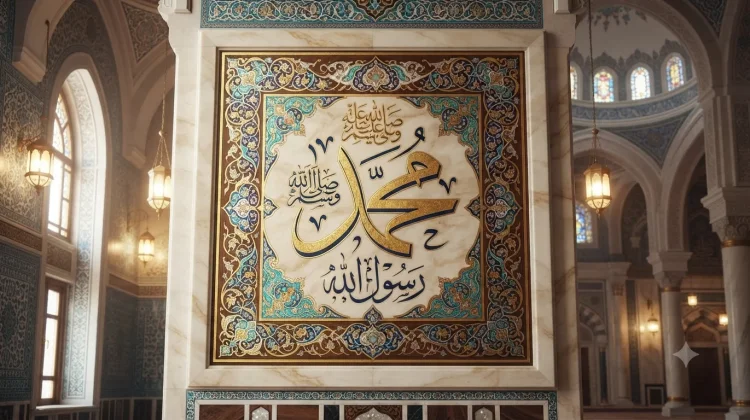 صلى الله عليه وسلم
صلى الله عليه وسلم
محمد
رسول الله